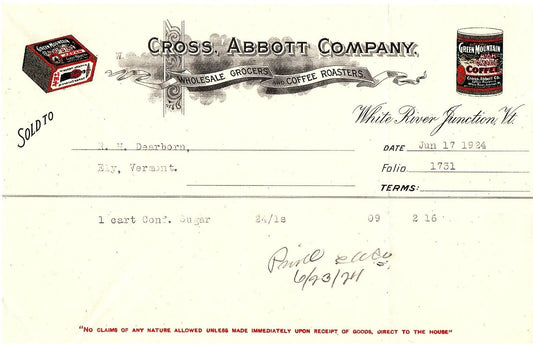 CROSS, ABBOTT COMPANY,
WHOLESALE GROCERS AND COFFEE ROASTERS.
GREEN MOUNTAIN
COFFEE
CROSS ABBOTT CO.
White River Junction, Vt.
SOLD TO
R. H. Dearborn,
Ely, Vermont.
DATE Jun 17 1924
Folio 1731
TERMS:
1 cart Conf. Sugar 24/1s 09 2 16
6/23/24
"NO CLAIMS OF ANY NATURE ALLOWED UNLESS MADE IMMEDIATELY UPON RECEIPT OF GOODS, DIRECT TO THE HOUSE"